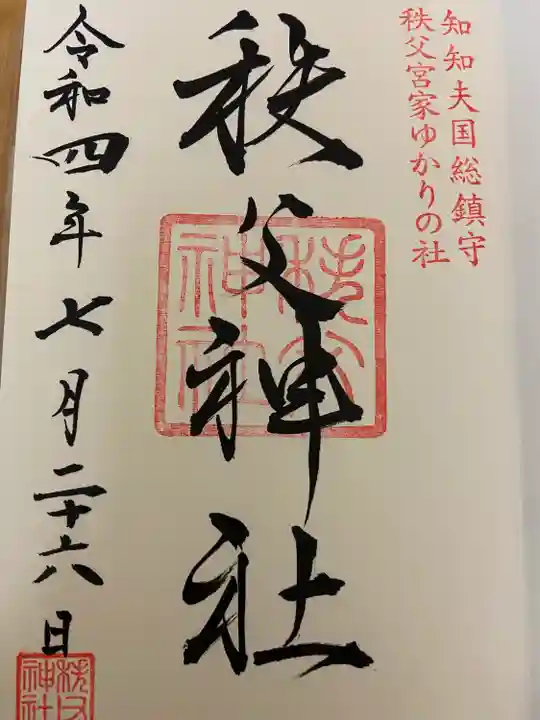 知知夫国総鎮守
秩父宮家ゆかりの社
秩父神社
秩父神社
令和四年七月二十六日
秩父神社